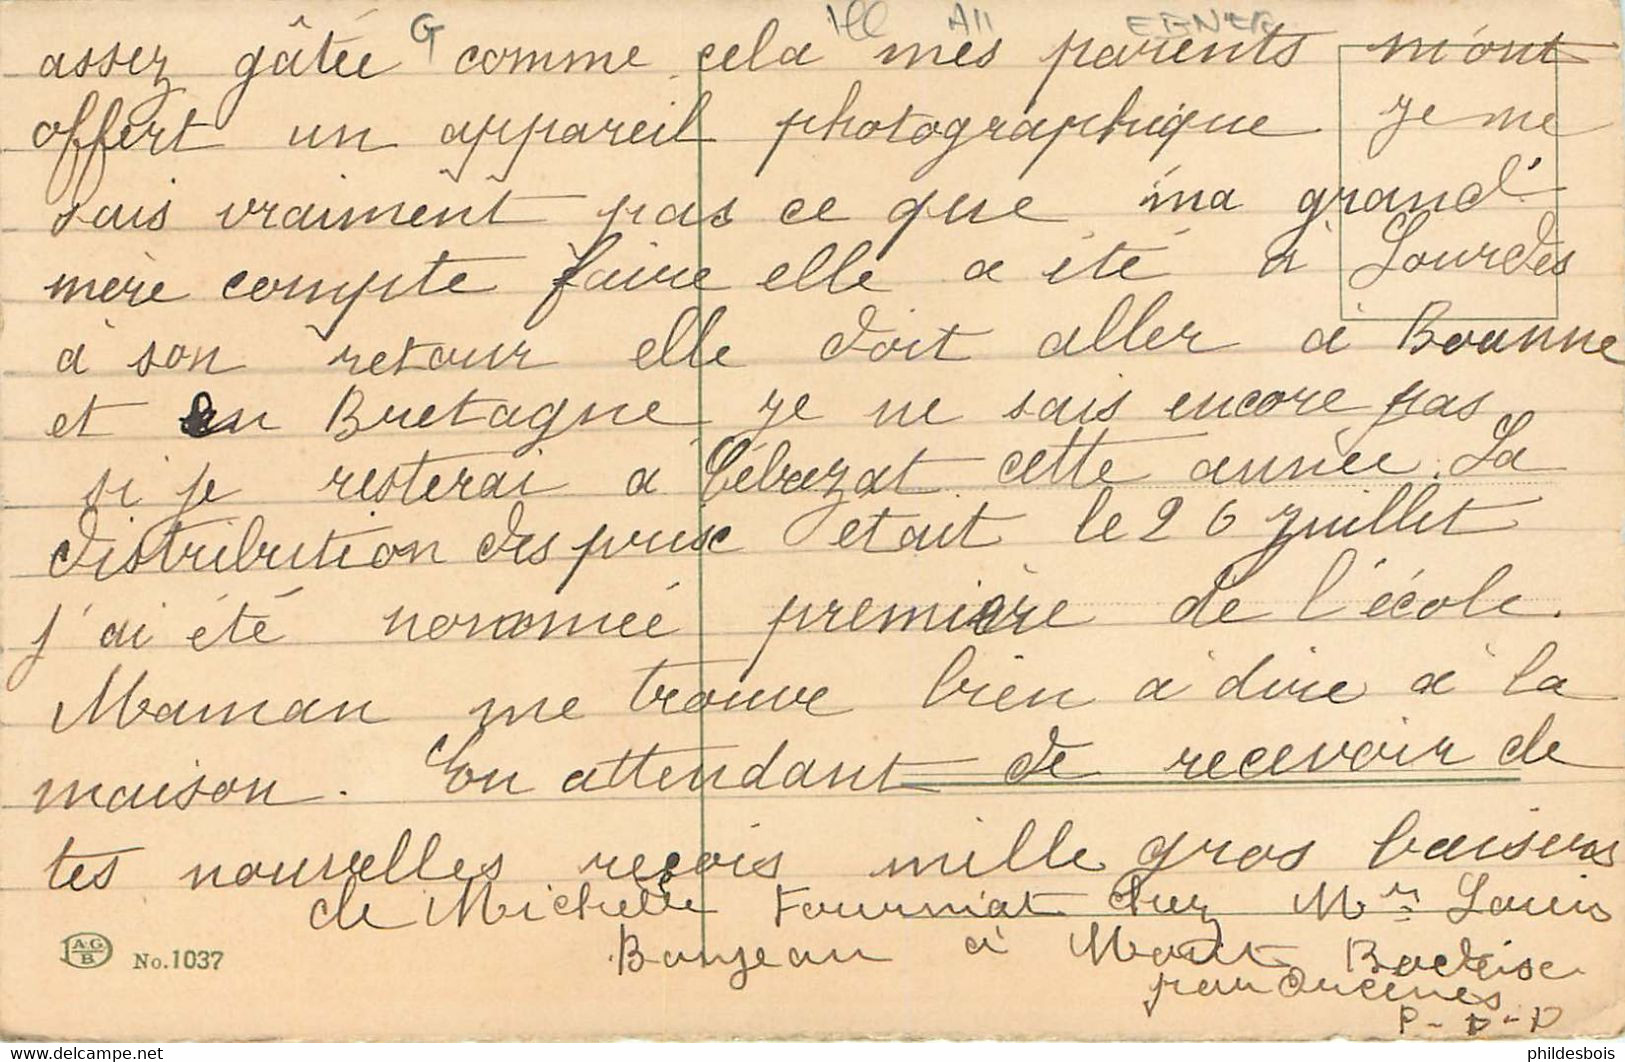 Ill All EBNER
G
assez gâtée comme cela mes parents m'ont
offert un appareil photographique je me
sais vraiment pas ce que ma grand'
mère compte faire elle a été à Lourdes
à son retour elle doit aller à
et en Bretagne je ne sais encore pas
si je resterai à Cébazat cette année. La
distribution des prix etait le 26 juillet
j'ai été nommée première de l'école.
Maman me trouve bien à dire à la
maison. En attendant de recevoir de
tes nouvelles reçois mille gros baisers
de Michelle Fourniat chez Mr Louis
Banjean à Mont
par
P-D-D
AG B No.1037
phildesbois
www.delcampe.net